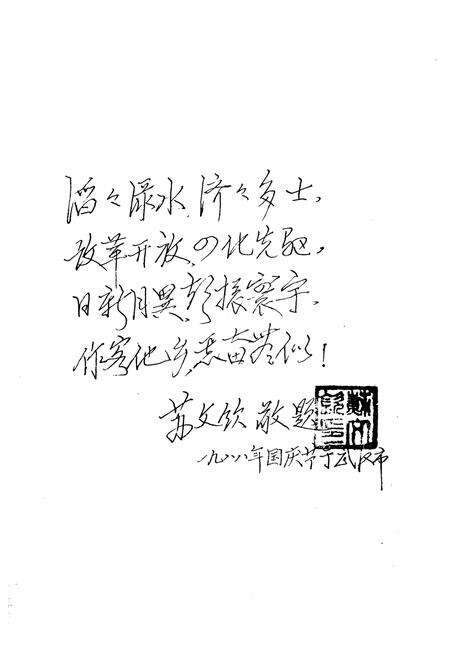 滔々渌水,济々多士,
改革开放,四化先驱,
日新月異,振寰宇,
作客他乡,奋似!
苏文钦 敬题
一九八八年国庆节于武汉市